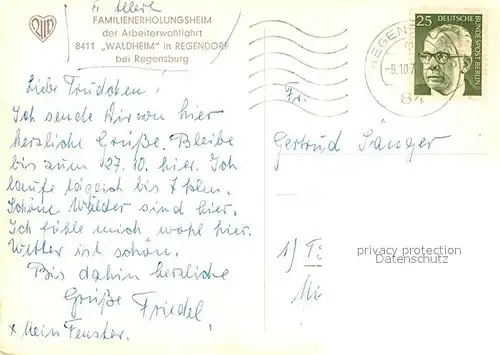 FAMILIENERHOLUNGSHEIM
der Arbeiterwohlfahrt
8411 „WALDHEIM" in REGENDORF
bei Regensburg
25
DEUTSCHE
BUNDESPOST BERLIN
REGEN
-9.10.7
84
Liebe Trudchen!
Ich sende Dir von hier
herzliche Grüße. Bleibe
bis zum 27.10. hier. Ich
laufe täglich bis 7 klm.
Schöne Wälder sind hier.
Ich fühle mich wohl hier.
Wetter ist schön.
Bis dahin herzliche
Grüße Friedel
x Mein Fenster.
Fr.
Gertrud Sänger
1)
privacy protection
Datenschutz